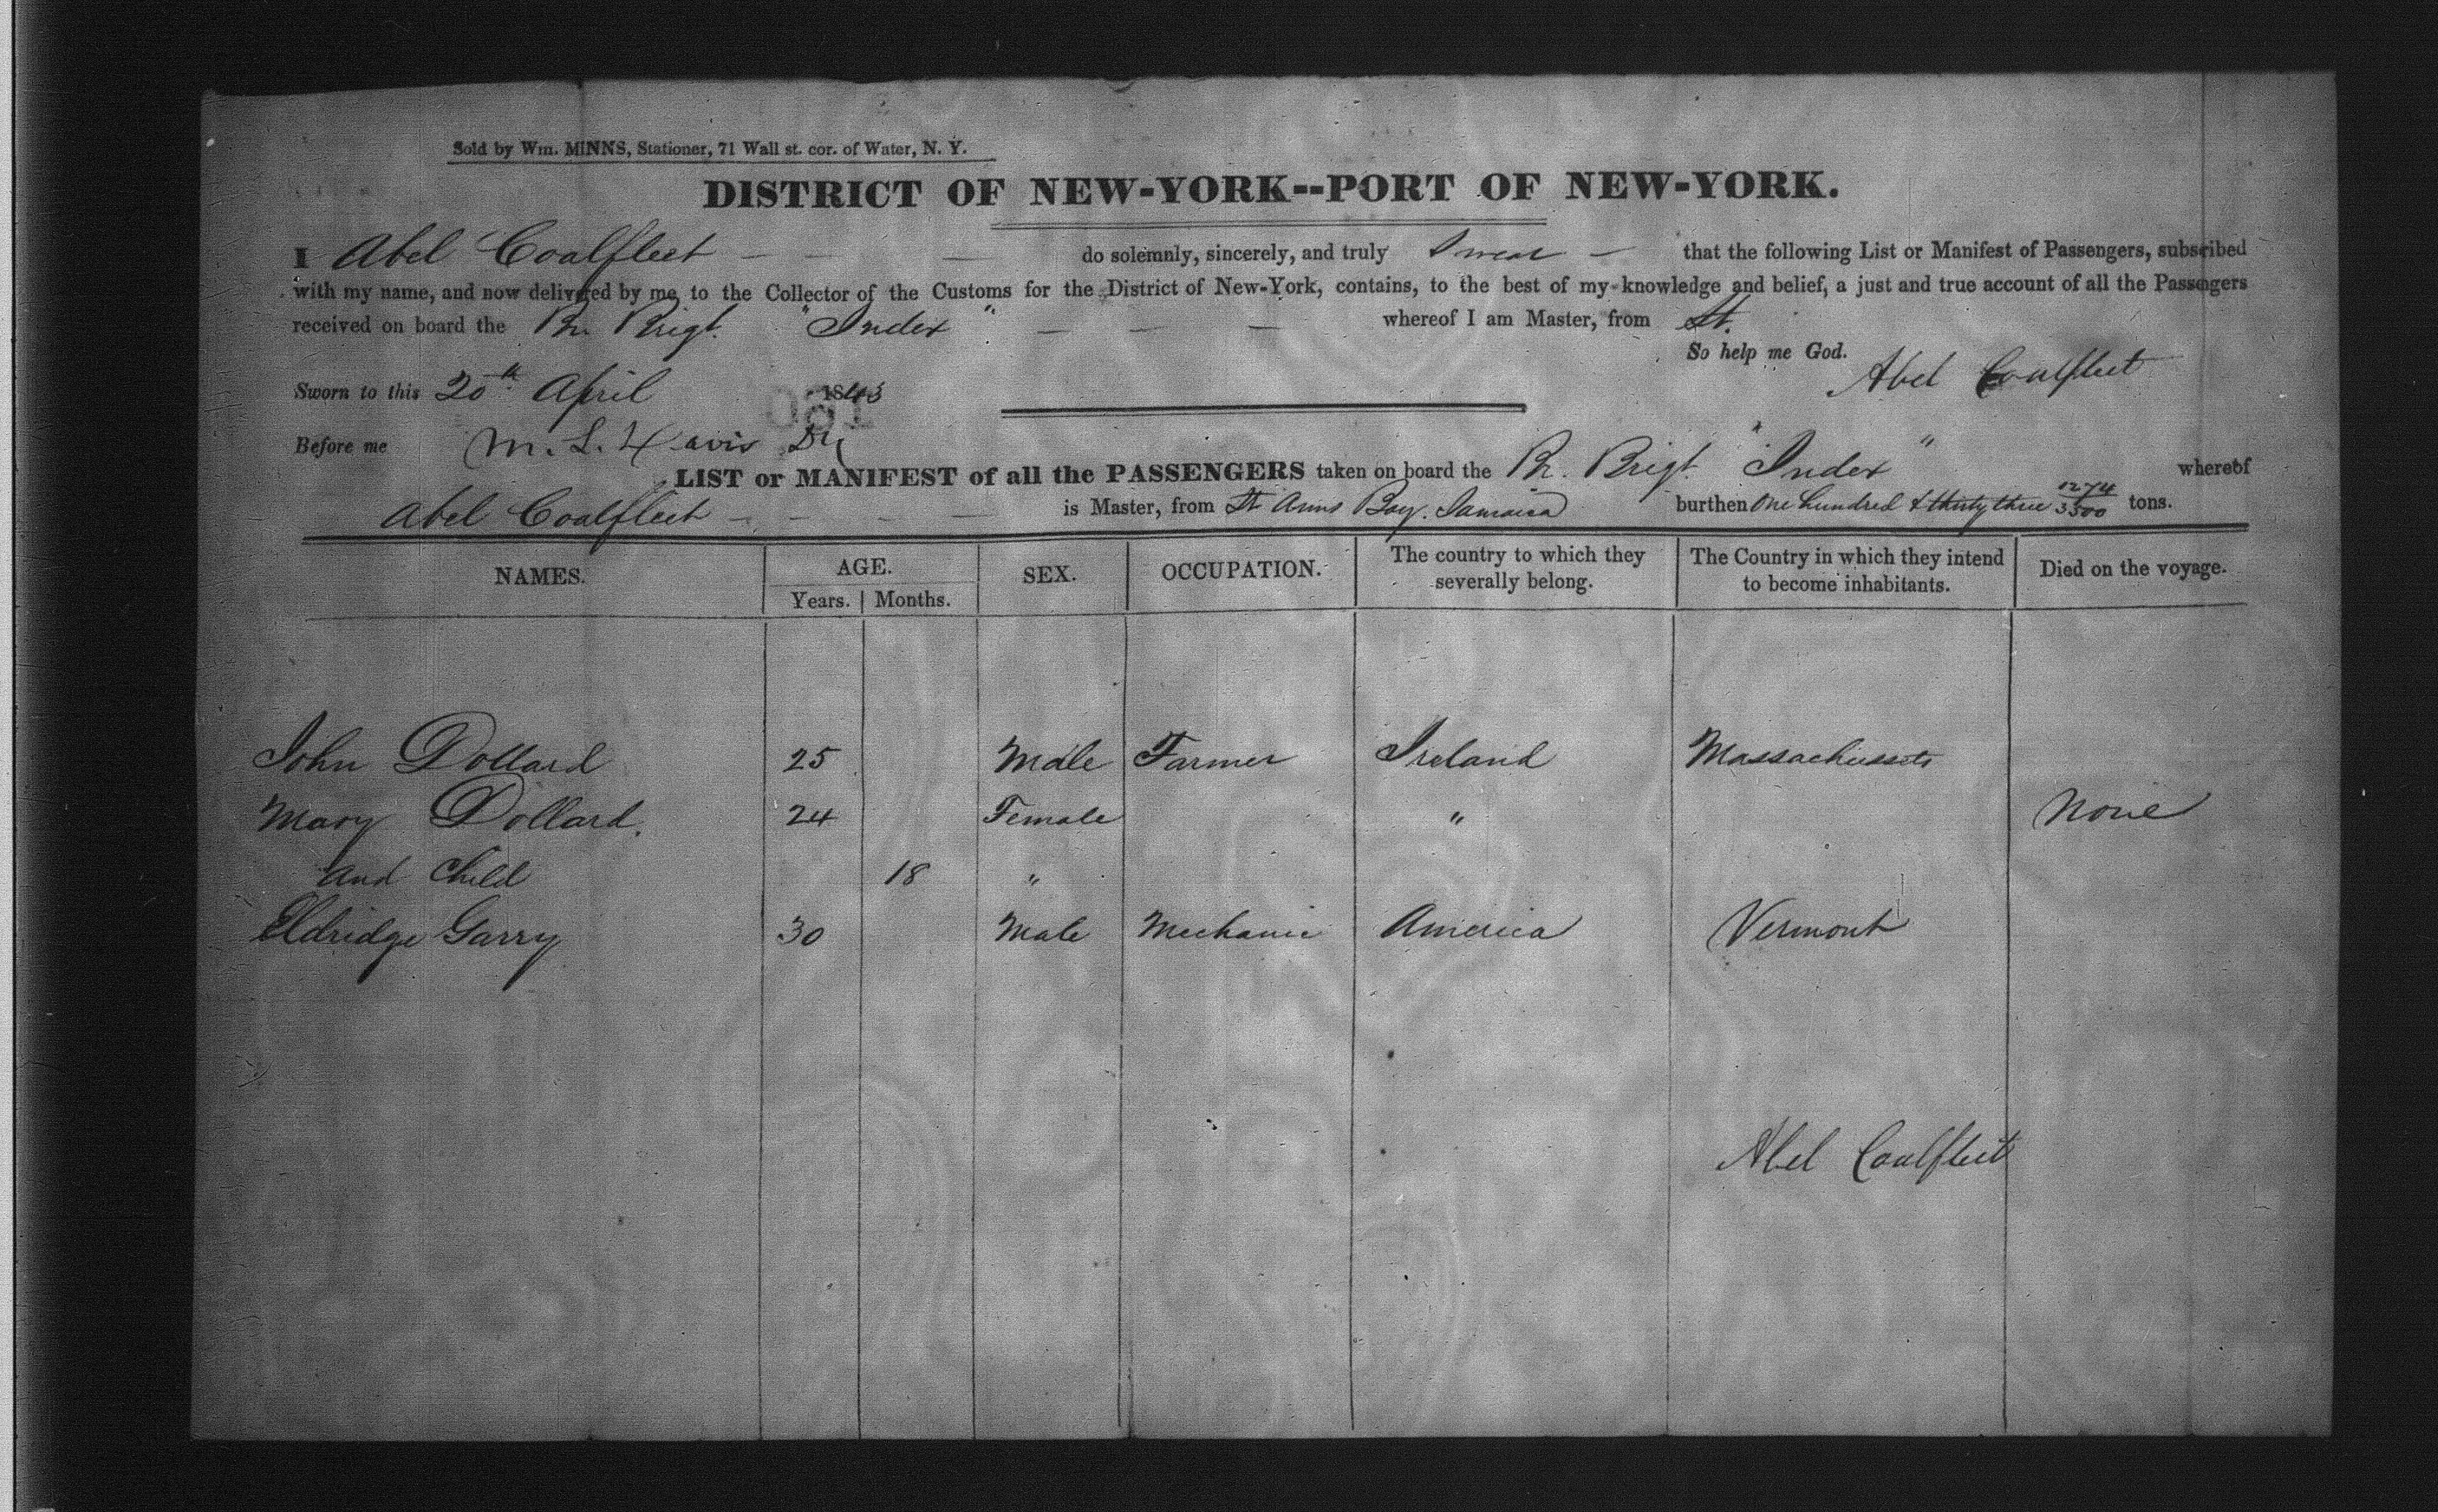 Sold by Wm. MINNS, Stationer, 71 Wall st. cor. of Water, N. Y.
DISTRICT OF NEW-YORK--PORT OF NEW-YORK.
I Abel Coalfleet do solemnly, sincerely, and truly Swear that the following List or Manifest of Passengers, subscribed
with my name, and now delivered by me to the Collector of the Customs for the District of New-York, contains, to the best of my knowledge and belief, a just and true account of all the Passengers
received on board the Br. Brigt. "Index" whereof I am Master, from St.
So help me God.
Abel Coalfleet
Sworn to this 20th April 1843
Before me M. L. Davis
LIST or MANIFEST of all the PASSENGERS taken on board the Br. Brigt. "Index" whereof
Abel Coalfleet is Master, from St Anns Bay. Jamaica burthen One hundred & thirty three 1274/3500 tons.
NAMES. AGE. SEX. OCCUPATION. The country to which they severally belong. The Country in which they intend to become inhabitants. Died on the voyage.
Years. Months.
John Dollard 25 Male Farmer Ireland Massachussets
Mary Dollard. 24 Female " None
and Child 18 "
Eldridge Garry 30 Male Mechanic America Vermont
Abel Coalfleet